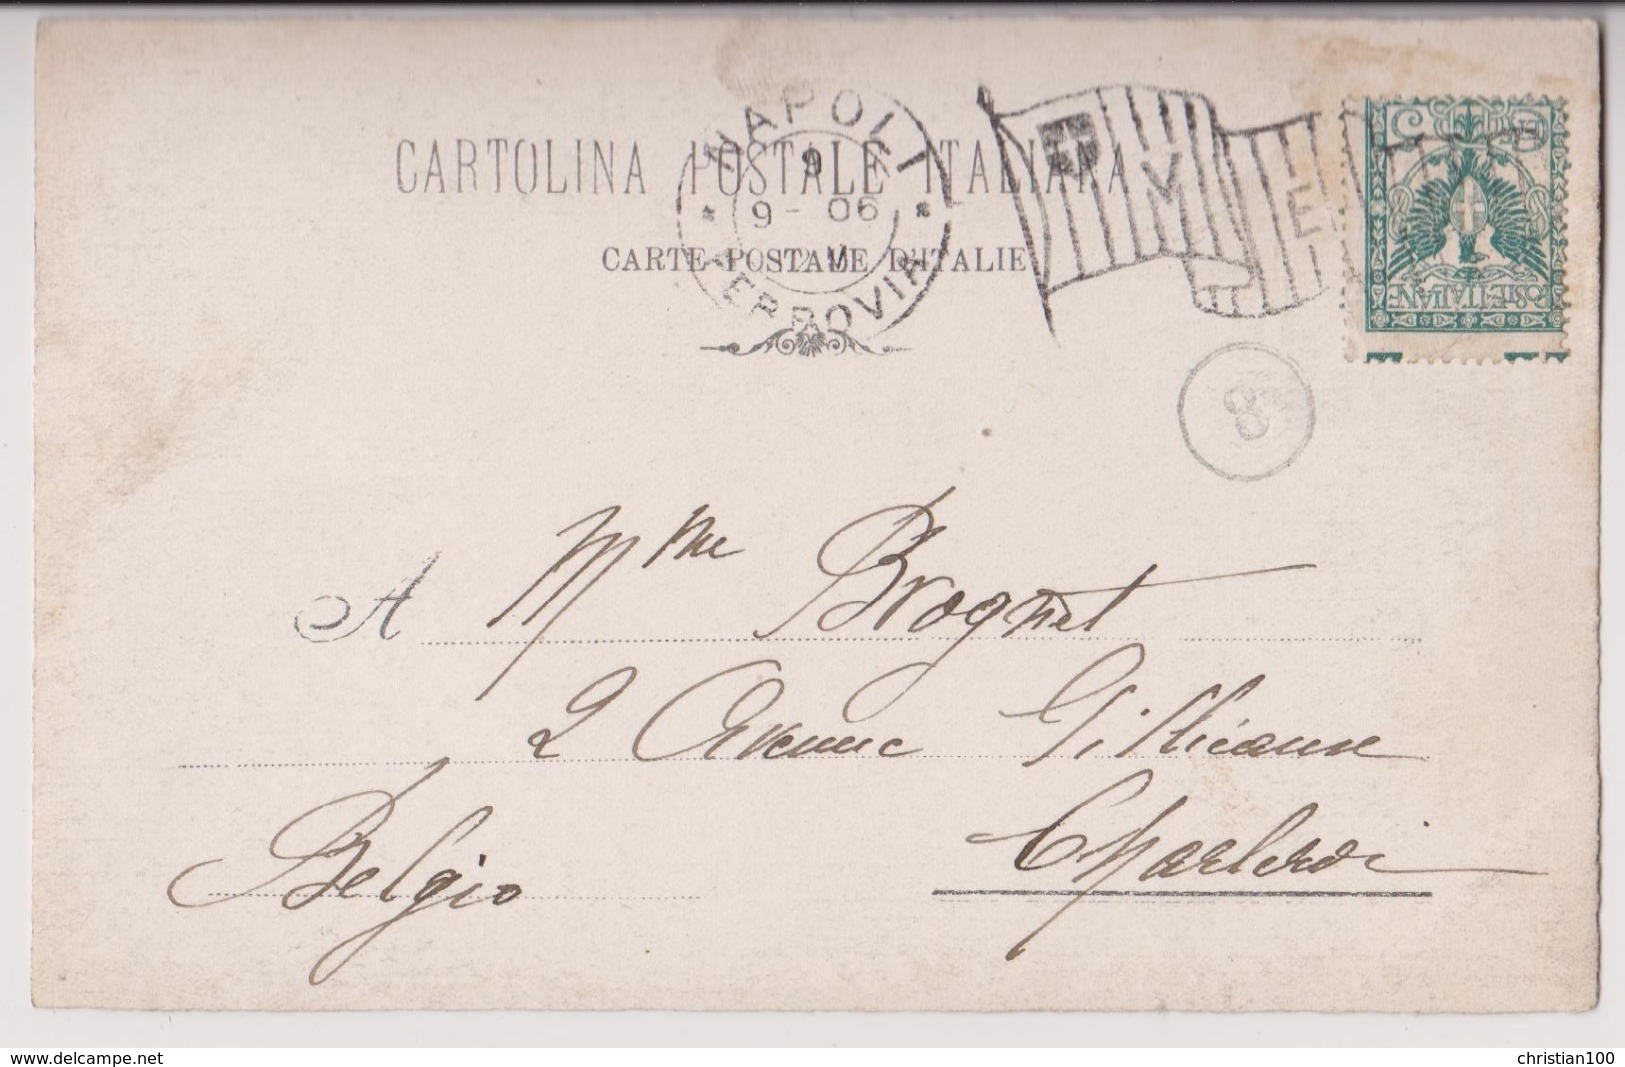 CARTOLINA POSTALE ITALIANA
CARTE POSTALE D'ITALIE
NAPOLI
9
9 - 06
V
FERROVIA
V E
5
POSTE ITALIANE
8
A Mme Brognet
2 Avenue
Charleroi
Belgio
www.delcampe.net
christian100